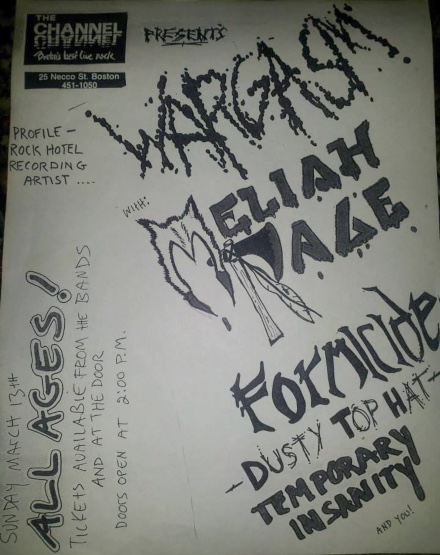 THE
CHANNEL
Boston's best live rock
25 Necco St. Boston
451-1050
PRESENTS
WARGASM
PROFILE -
ROCK HOTEL
RECORDING
ARTIST ....
WITH:
MELIAH
RAGE
FORMICIDE
- DUSTY TOP HAT -
TEMPORARY
INSANITY
AND YOU!
SUNDAY MARCH 13TH
ALL AGES!
TICKETS AVAILABLE FROM THE BANDS
AND AT THE DOOR
DOORS OPEN AT 2:00 P.M.